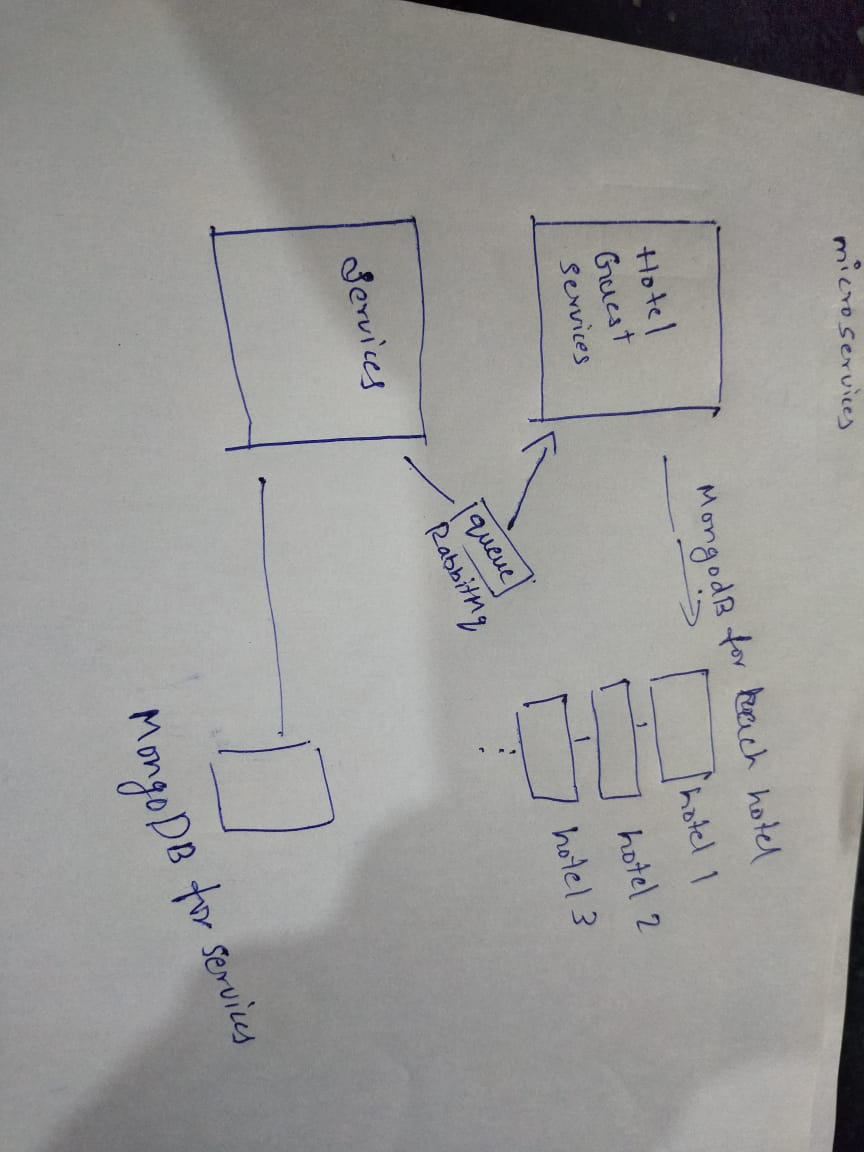 microservices
Hotel
Guest
services
MongodB for each hotel
hotel 1
hotel 2
hotel 3
queue
Rabbitmq
Services
MongoDB for services